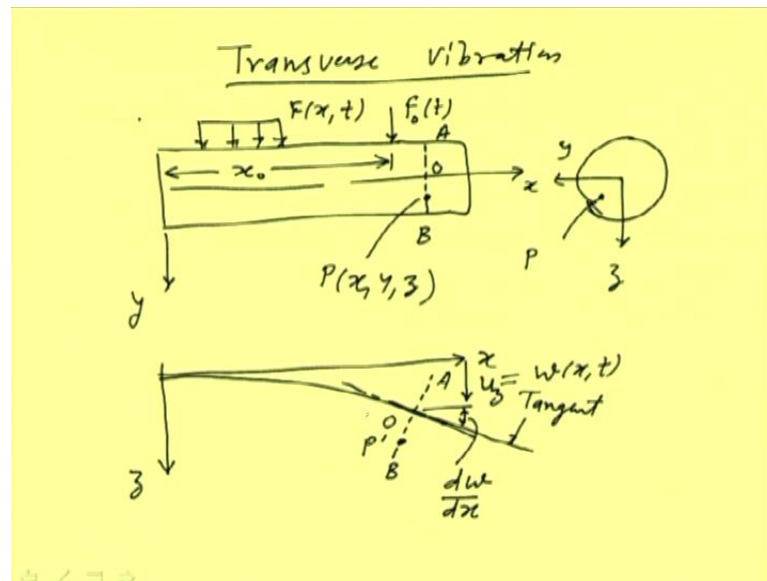 Transverse Vibration
F(x, t) F₀(t)
A
x₀ O x y
B P
P(x, y, z) z
y
x
A u_z = w(x, t)
O Tangent
P'
B
z dw/dx